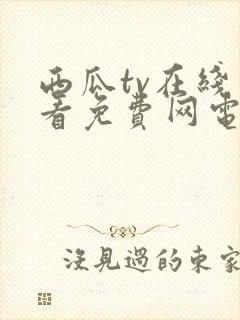 西瓜tv在线
看免费网电
沒見過的東家